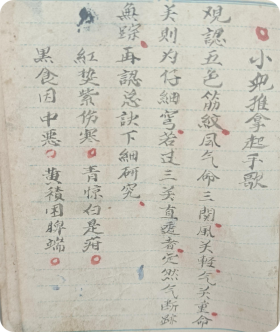 小兒推拿起手歌
观認五色筋紋風气命三関風关輕气关重命
关則为仔細穷若过三关直透者定然气断跡
無踪再認总訣下細研究
紅楚紫伤寒青惊白是疳
黑食因中悪黄積困脾端